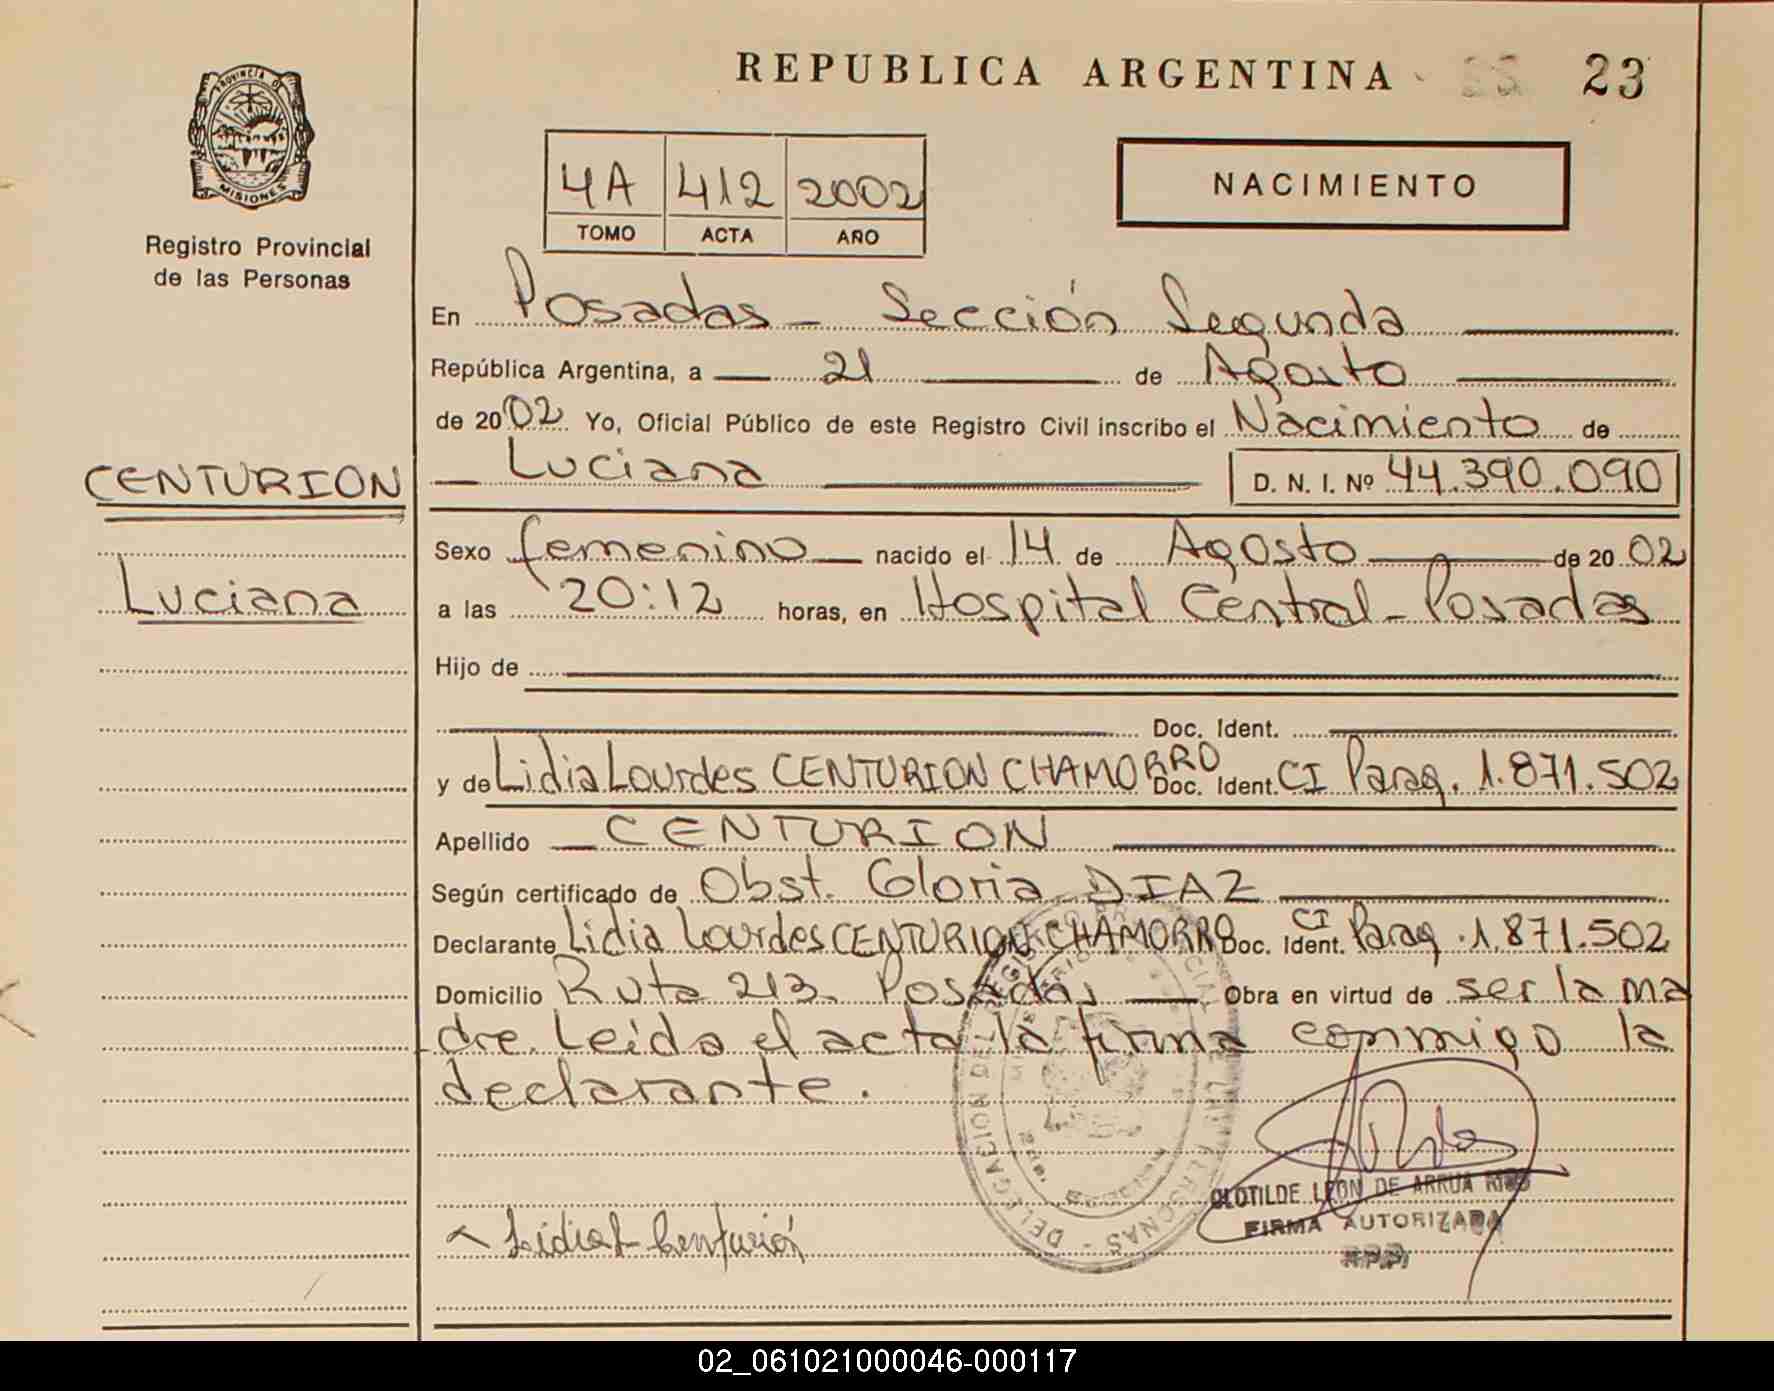 REPUBLICA ARGENTINA
23
PROVINCIA DE
MISIONES
Registro Provincial
de las Personas
4A 412 2002
TOMO ACTA AÑO
NACIMIENTO
En Posadas - Sección Segunda
República Argentina, a 21 de Agosto
de 2002 Yo, Oficial Público de este Registro Civil inscribo el Nacimiento de
Luciana D. N. I. Nº 44.390.090
CENTURION
Luciana
Sexo femenino nacido el 14 de Agosto de 2002
a las 20:12 horas, en Hospital Central - Posadas
Hijo de
Doc. Ident.
y de Lidia Lourdes CENTURION CHAMORRO Doc. Ident. CI Parag. 1.871.502
Apellido CENTURION
Según certificado de Obst. Gloria DIAZ
Declarante Lidia Lourdes CENTURION CHAMORRO Doc. Ident. CI Parag. 1.871.502
Domicilio Ruta 213. Posadas Obra en virtud de ser la ma
dre. Leída el acta la firma conmigo la
declarante.
DELEGACION DEL REGISTRO PROVINCIAL DE LAS PERSONAS
Lidia L Centurión
CLOTILDE LEON DE ARRUA RIOS
FIRMA AUTORIZADA
R.P.P.
02_061021000046-000117